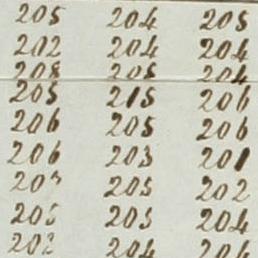 205 204 205
202 204 204
208 205 204
205 215 206
206 205 206
206 203 201
203 205 202
205 203 204
202 204 204